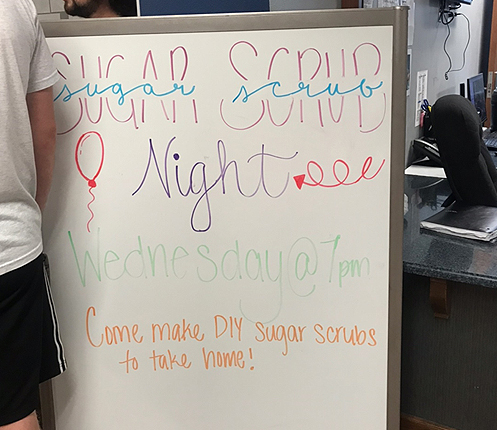 SUGAR SCRUB
sugar scrub
Night
Wednesday @ 7pm
Come make DIY sugar scrubs
to take home!